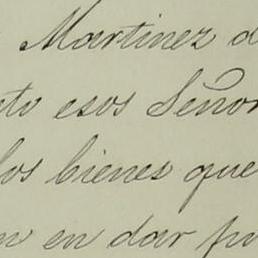 Martinez d
to esos Señor
los bienes que
n en dar po